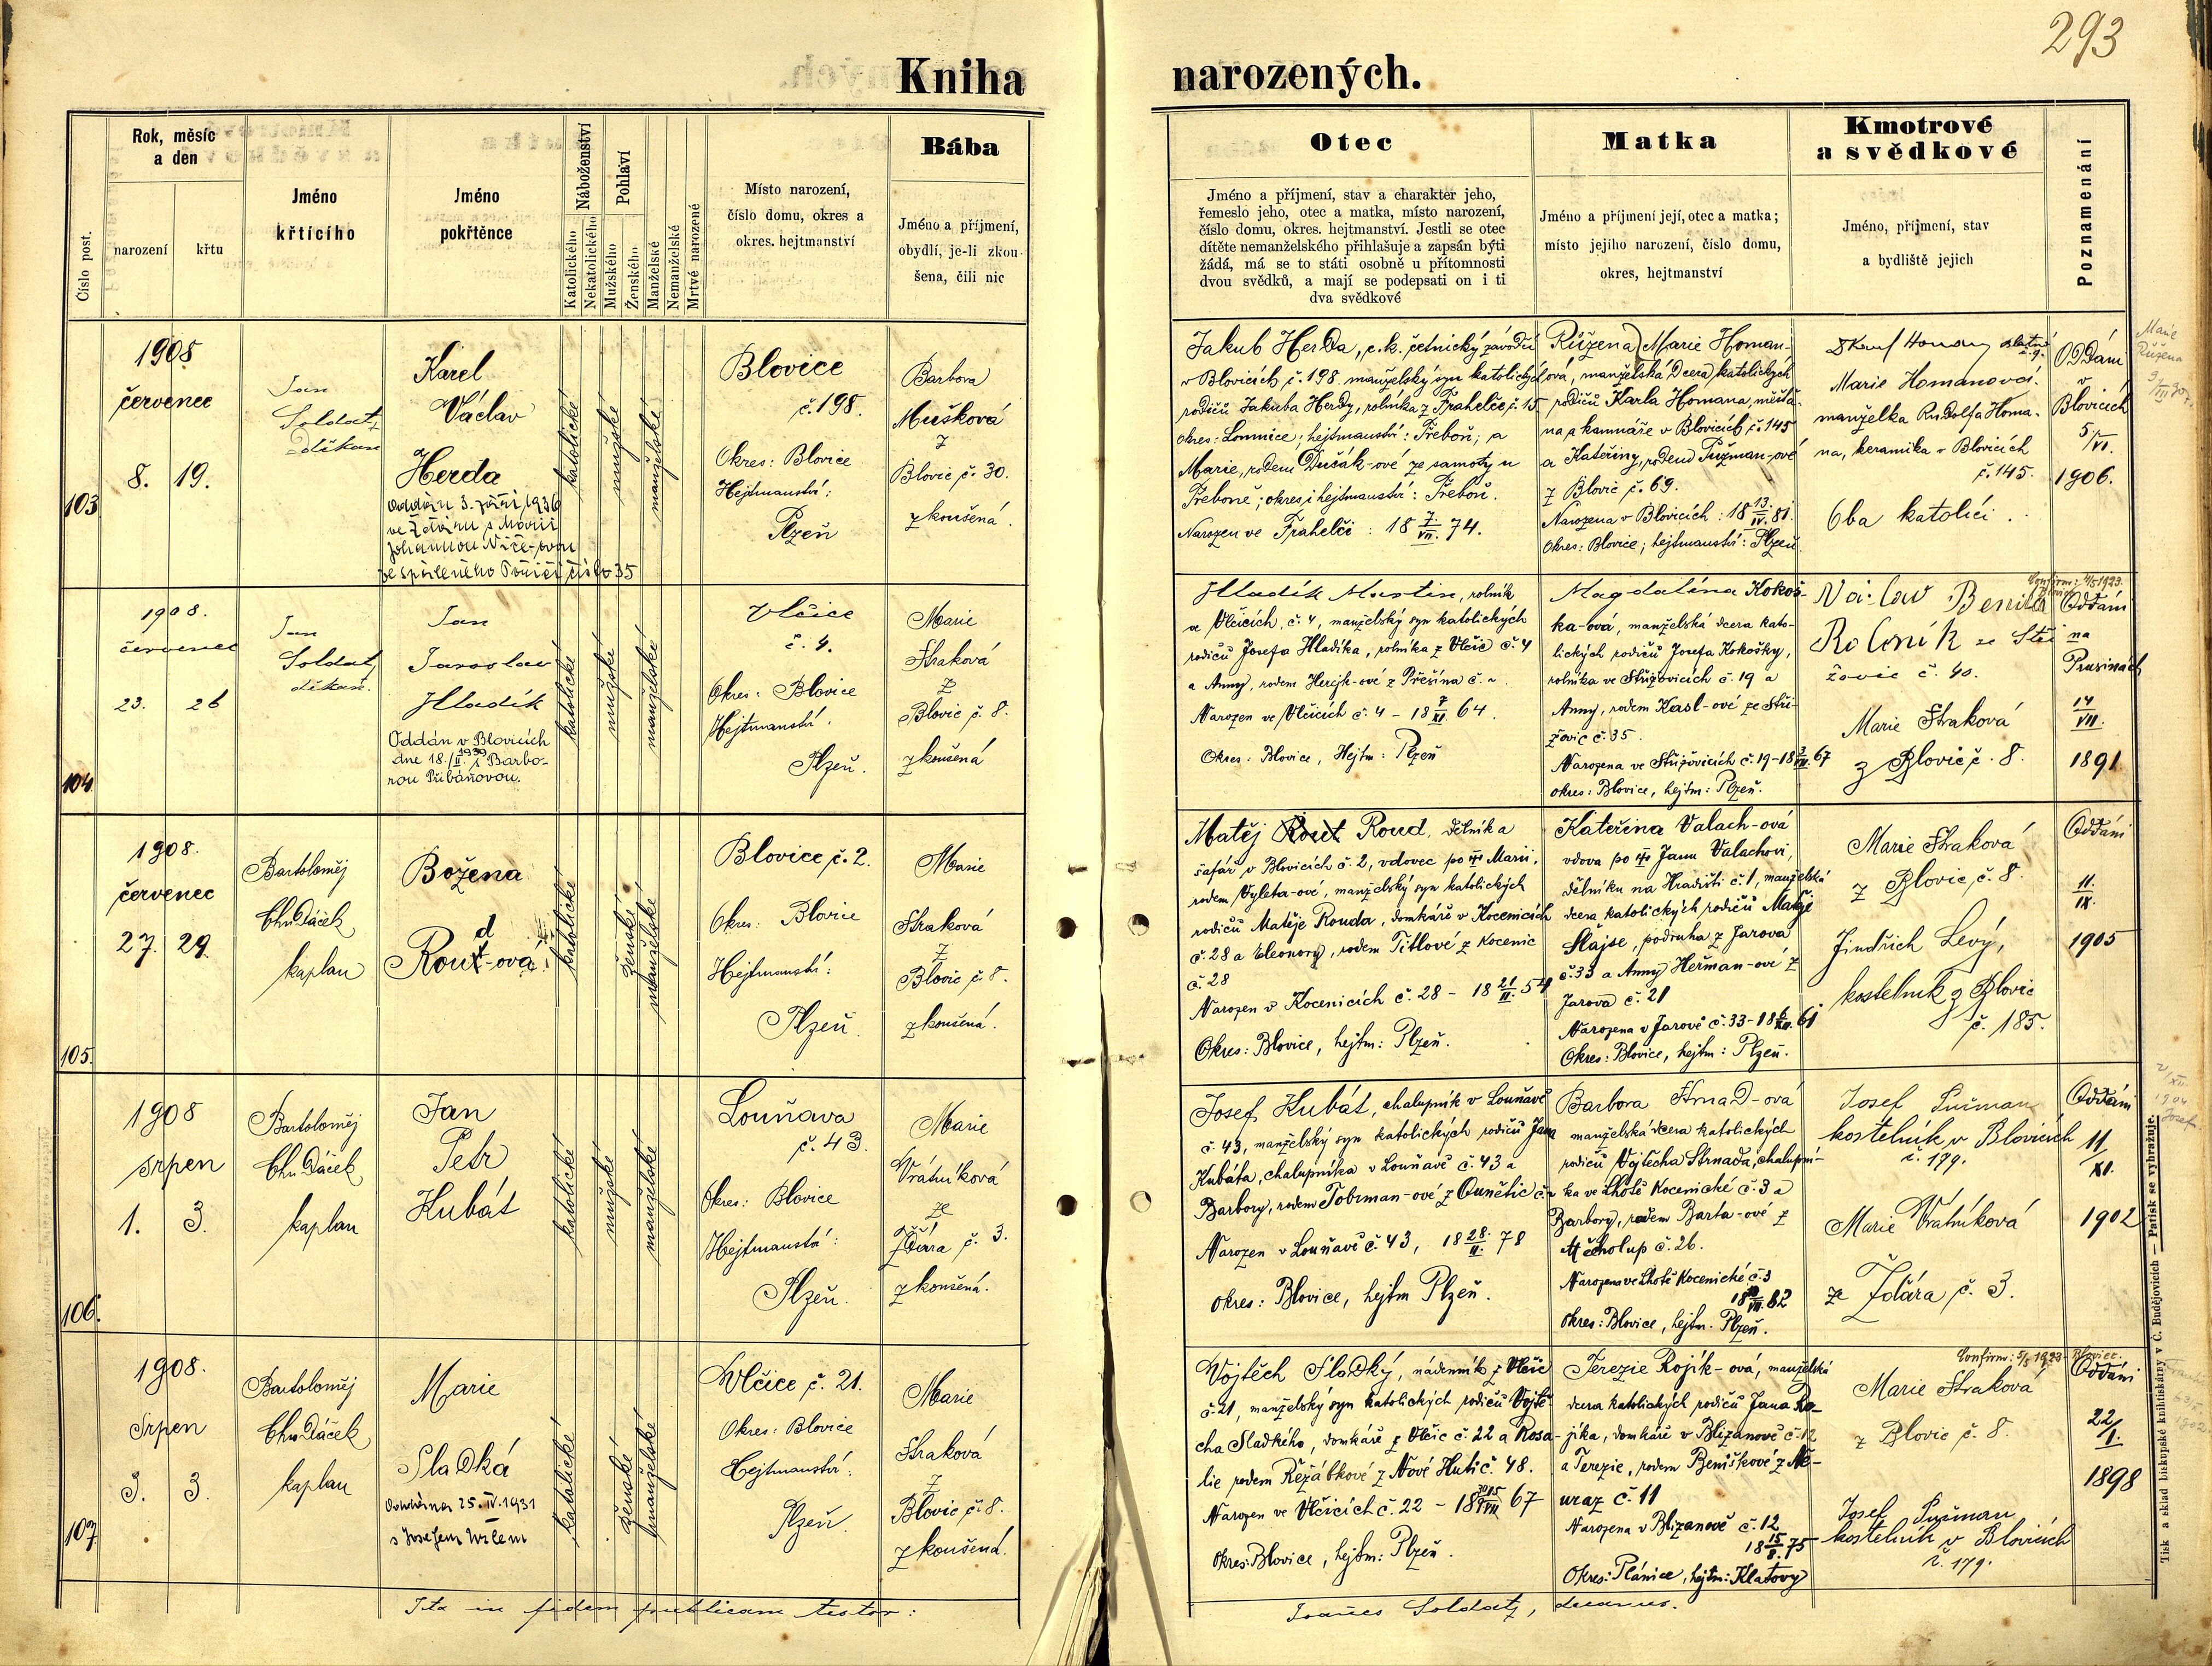 293
Kniha narozených.
Číslo post.
Rok, měsíc
a den
narození
křtu
Jméno
křtícího
Jméno
pokřtěnce
Náboženství
Katolického
Nekatolického
Pohlaví
Mužského
Ženského
Manželské
Nemanželské
Mrtvě narozené
Místo narození,
číslo domu, okres a
okres. hejtmanství
Bába
Jméno a příjmení,
obydlí, je-li zkou-
šena, čili nic
Otec
Jméno a příjmení, stav a charakter jeho,
řemeslo jeho, otec a matka, místo narození,
číslo domu, okres. hejtmanství. Jestli se otec
dítěte nemanželského přihlašuje a zapsán býti
žádá, má se to státi osobně u přítomnosti
dvou svědků, a mají se podepsati on i ti
dva svědkové
Matka
Jméno a příjmení její, otec a matka;
místo jejího narození, číslo domu,
okres, hejtmanství
Kmotrové
a svědkové
Jméno, příjmení, stav
a bydliště jejich
Poznamenání
103
1908
červenec
8. 19.
Jan
Soldát,
děkan
Karel
Václav
Herda
Oddán 3. září 1936
ve Žďáru s Marií
Johannou
ze Spáleného Poříčí číslo 35
katolické
mužské
manželské
Blovice
č. 198.
Okres: Blovice
Hejtmanství:
Plzeň
Barbora
Mušková
z
Blovic č. 30.
zkoušená.
Jakub Herda, c. k. četnický závodčí
v Blovicích č. 198. manželský syn katolických
rodičů Jakuba Herdy, rolníka z Frahelče č. 15
okres: Lomnice; hejtmanství: Třeboň; a
Marie, rodem Dušák-ové ze samoty u
Třeboně; okres i hejtmanství: Třeboň.
Narozen ve Frahelči: 18 7/VII. 74.
Růžena Marie Homan-
ová, manželská dcera katolických
rodičů Karla Homana, měšťa-
na a kamnáře v Blovicích č. 145
a Kateřiny, rodem Pužman-ové
z Blovic č. 69.
Narozena v Blovicích: 18 13./IV. 81.
Okres: Blovice; hejtmanství: Plzeň
Marie Homanová
manželka Rudolfa Homa-
na, keramika v Blovicích
č. 145.
Oba katolíci.
Oddáni
v
Blovicích
5/VI.
1906.
Marie
Růžena
104
1908.
červenec
23. 26
Jan
Soldát,
děkan.
Jan
Jaroslav
Hladík
Oddán v Blovicích
dne 18./II. 1930 s Barbo-
rou Pubáňovou.
katolické
mužské
manželské
Vlčice
č. 4.
Okres: Blovice
Hejtmanství:
Plzeň.
Marie
Straková
z
Blovic č. 8.
zkoušená
Hladík Martin, rolník
ve Vlčicích, č. 4, manželský syn katolických
rodičů Josefa Hladíka, rolníka z Vlčic č. 4
a Anny, rodem Hercík-ové z Přešína č.
Narozen ve Vlčicích č. 4 - 18 7/XI. 64.
Okres: Blovice, Hejtm: Plzeň
Magdalena Kokoš-
ka-ová, manželská dcera kato-
lických rodičů Josefa Kokošky,
rolníka ve Střížovicích č. 19 a
Anny, rodem Kasl-ové ze Stří-
žovic č. 35.
Narozena ve Střížovicích č. 19 - 18 67
okres: Blovice, hejtm: Plzeň.
Confirm: 4/5 1923.
Václav Benita
Rolník ze Stří
žovic č. 40.
Marie Straková
z Blovic č. 8.
Oddáni
na
Prusinách
14/VII.
1891
105.
1908.
červenec
27. 29.
Bartoloměj
Chudáček
kaplan
Božena
d
Rout-ová
katolické
ženské
manželské
Blovice č. 2.
Okres: Blovice
Hejtmanství:
Plzeň.
Marie
Straková
z
Blovic č. 8.
zkoušená.
Matěj Rout Roud, dělník a
šafář v Blovicích č. 2, vdovec po Marii,
rodem Vyleta-ové, manželský syn katolických
rodičů Matěje Rouda, domkáře v Kocenicích
č. 28 a Eleonory, rodem Titlové z Kocenic
č. 28
Narozen v Kocenicích č. 28 - 18 21/II. 54
Okres: Blovice, hejtm: Plzeň.
Kateřina Valach-ová
vdova po Janu Valachovi,
dělníku na Hradišti č. 1, manželská
dcera katolických rodičů Matěje
Šlajse, podruha z Jarova
č. 33 a Anny Heřman-ové z
Jarova č. 21
Narozena v Jarově č. 33 - 18 61
Okres: Blovice, hejtm: Plzeň.
Marie Straková
z Blovic č. 8.
Jindřich Levý,
kostelník z Blovic
č. 185.
Oddáni
11./IX.
1905
106.
1908
srpen
1. 3.
Bartoloměj
Chudáček
kaplan
Jan
Petr
Kubát
katolické
mužské
manželské
Louňava
č. 43.
Okres: Blovice
Hejtmanství:
Plzeň.
Marie
Vrátníková
ze
Žďára č. 3.
zkoušená.
Josef Kubát, chalupník v Louňavě
č. 43, manželský syn katolických rodičů Jana
Kubáta, chalupníka v Louňavě č. 43 a
Barbory, rodem Tobrman-ové z Ounětic č.
Narozen v Louňavě č. 43, 18 28./II. 78
okres: Blovice, hejtm Plzeň.
Barbora Strnad-ová
manželská dcera katolických
rodičů Vojtěcha Strnada, chalupní-
ka ve Lhotě Kocenické č. 3 a
Barbory, rodem Barta-ové z
Měcholup č. 26.
Narozena ve Lhotě Kocenické č. 3
18 82
okres: Blovice, hejtm. Plzeň.
Josef Pužman
kostelník v Blovicích
č. 179.
Marie Vratníková
ze Žďára č. 3.
Oddáni
11/XI.
1902
1904
Josef
107
1908.
Srpen
3. 3.
Bartoloměj
Chudáček
kaplan
Marie
Sladká
Oddána 25. IV. 1931
s Josefem
katolické
ženské
manželské
Vlčice č. 21.
Okres: Blovice
Hejtmanství:
Plzeň.
Marie
Straková
z
Blovic č. 8.
zkoušená.
Vojtěch Sladký, nádenník z Vlčic
č. 21, manželský syn katolických rodičů Vojtě-
cha Sladkého, domkáře z Vlčic č. 22 a Rosa-
lie rodem Řežábkové z Nové Huti č. 48.
Narozen ve Vlčicích č. 22 - 18 67
okres: Blovice, hejtm: Plzeň.
Terezie Rojík-ová, manželská
dcera katolických rodičů Jana Ro-
jíka, domkáře v Blizanově č. 12
a Terezie, rodem Beníškové z Ne-
uraz č. 11
Narozena v Blizanově č. 12
18 15/8. 75
Okres: Plánice, hejtm: Klatovy
Confirm: 5/5 1923 - Blovice.
Marie Straková
z Blovic č. 8.
Josef Pužman
kostelník v Blovicích
č. 179.
Oddáni
22/I.
1898
Ita in fidem publicam testor:
Joannes Soldát, decanus.
Tisk a sklad biskupské knihtiskárny v Č. Budějovicích — Patisk se vyhražuje.